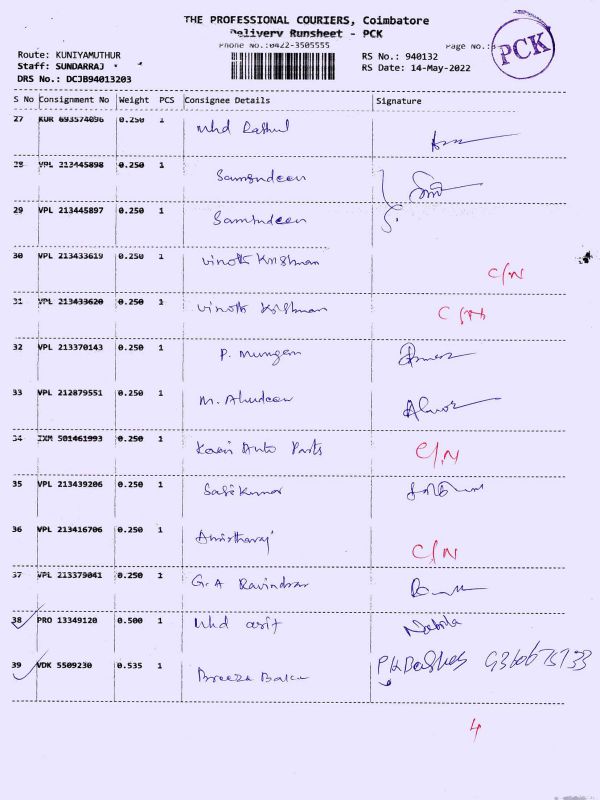 THE PROFESSIONAL COURIERS, Coimbatore
Delivery Runsheet - PCK
Phone No.:0422-3505555
Page No.:3
PCK
Route: KUNIYAMUTHUR
Staff: SUNDARRAJ
DRS No.: DCJB94013203
RS No.: 940132
RS Date: 14-May-2022
S No Consignment No Weight PCS Consignee Details Signature
27 KUR 693574096 0.250 1 Mhd Rathul
28 VPL 213445898 0.250 1 Samsudeen
29 VPL 213445897 0.250 1 Samsudeen
30 VPL 213433619 0.250 1 Vinoth Krishnan C/N
31 VPL 213433620 0.250 1 Vinoth Krishnan C/N
32 VPL 213370143 0.250 1 P. Murugan
33 VPL 212879551 0.250 1 M. Alludeen
34 IXM 501461993 0.250 1 Auto Parts C/N
35 VPL 213439206 0.250 1 Sasikumar
36 VPL 213416706 0.250 1 Amirtharaj C/N
37 VPL 213379041 0.250 1 G.A Ravindran
38 PRO 13349120 0.500 1 Mhd Asif Nabila
39 VDK 5509230 0.535 1 Breeze
4